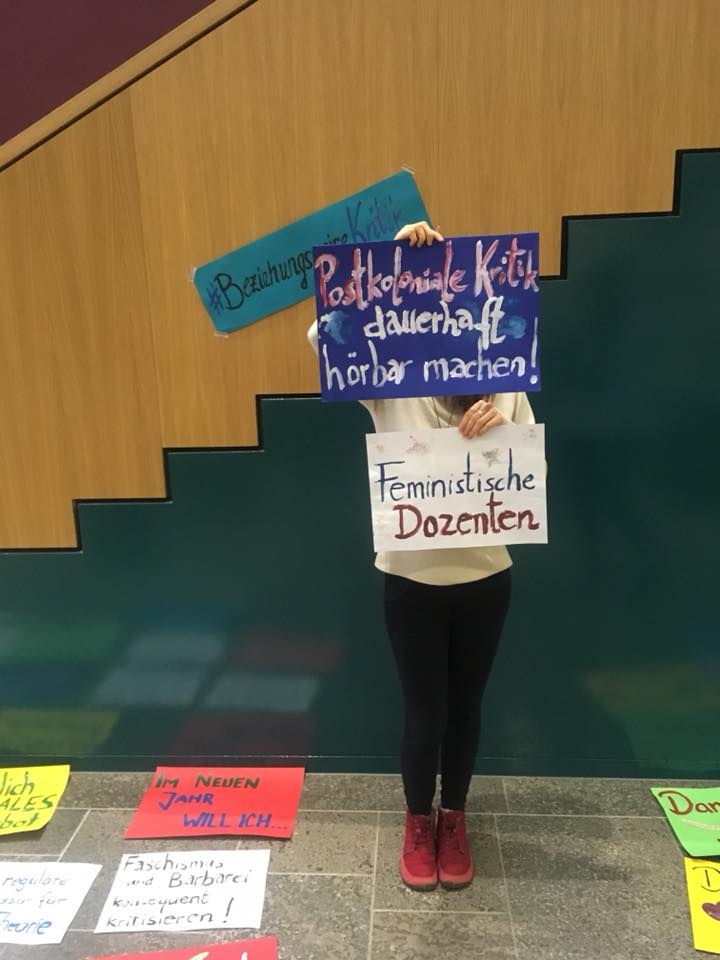 #Beziehungsweise Kritik
Postkoloniale Kritik
dauerhaft
hörbar machen!
Feministische
Dozenten
lich
ALES
bot
IM NEUEN
JAHR
WILL ICH...
regulare
ssur für
heorie
Faschismus
und Barbarei
konsequent
kritisieren!
Dan
D